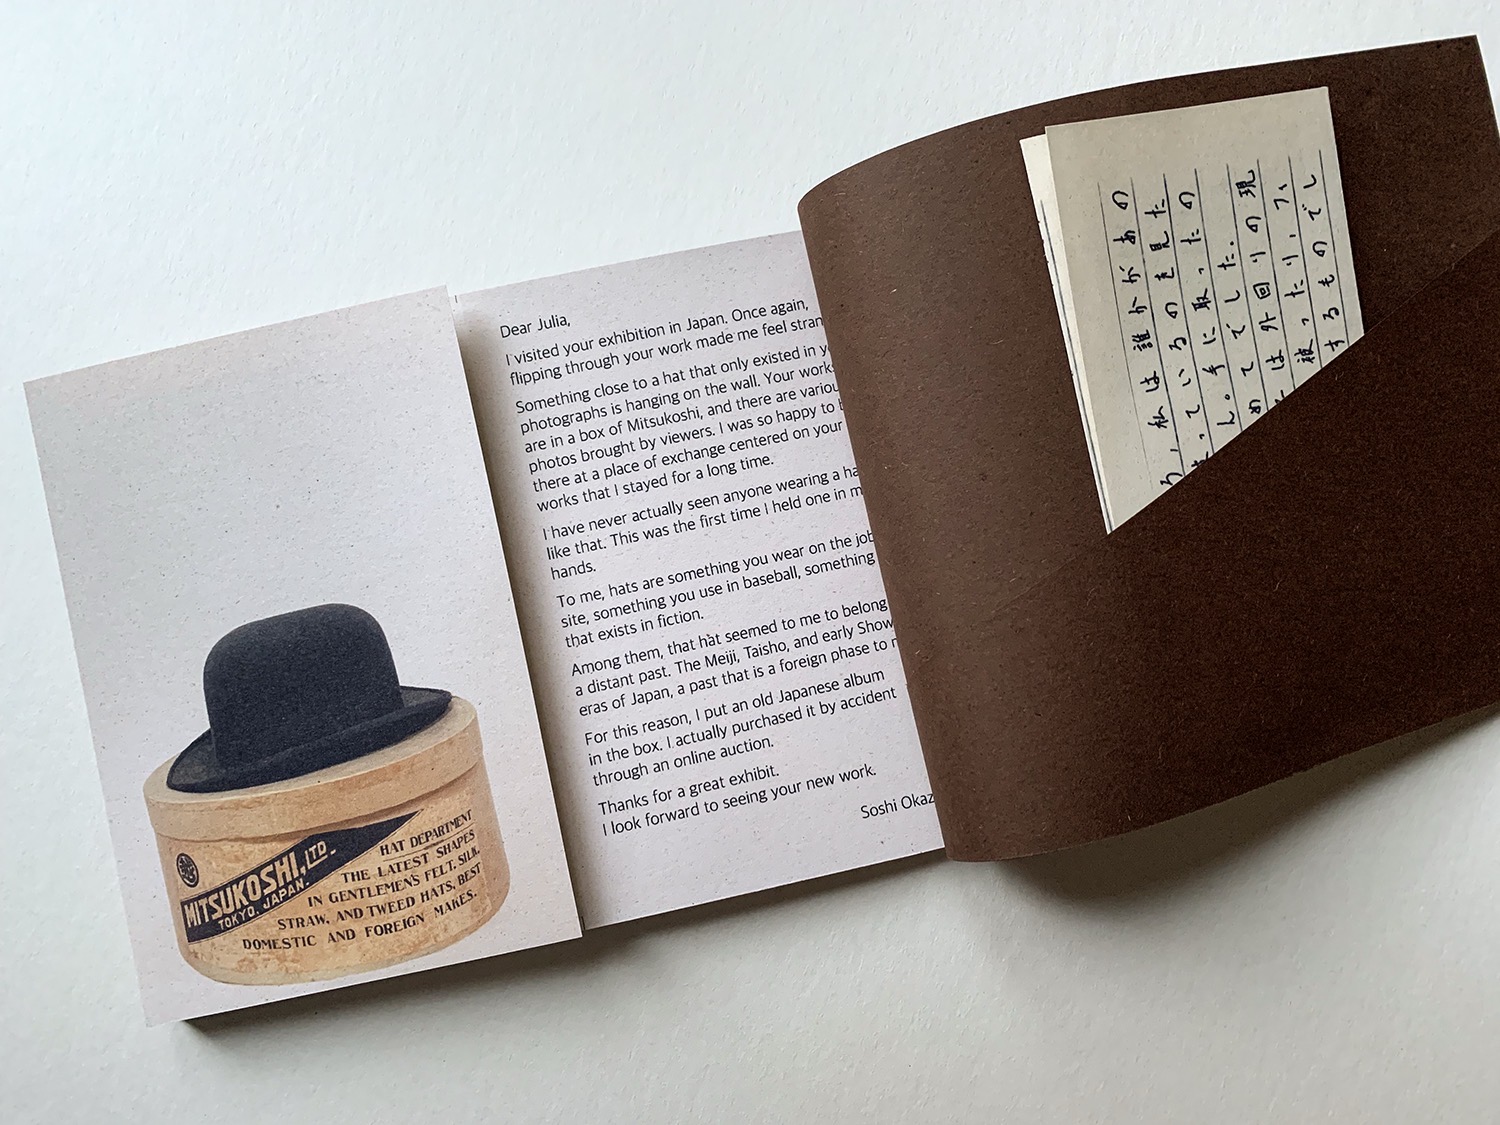 Dear Julia,
I visited your exhibition in Japan. Once again,
flipping through your work made me feel
Something close to a hat that only existed in
photographs is hanging on the wall. Your
are in a box of Mitsukoshi, and there are
photos brought by viewers. I was so happy to
there at a place of exchange centered on your
works that I stayed for a long time.
I have never actually seen anyone wearing a
like that. This was the first time I held one in
hands.
To me, hats are something you wear on the job
site, something you use in baseball, something
that exists in fiction.
Among them, that hat seemed to me to belong
a distant past. The Meiji, Taisho, and early
eras of Japan, a past that is a foreign phase to
For this reason, I put an old Japanese album
in the box. I actually purchased it by accident
through an online auction.
Thanks for a great exhibit.
I look forward to seeing your new work.
Soshi
MITSUKOSHI, LTD.
TOKYO. JAPAN.
HAT DEPARTMENT
THE LATEST SHAPES
IN GENTLEMEN'S FELT, SILK,
STRAW, AND TWEED HATS, BEST
DOMESTIC AND FOREIGN MAKES.
、私は誰かがあの
っているのを見た
ん。手に取ったの
めてでした。
は外回りの現
被ったり、フィ
するものでし